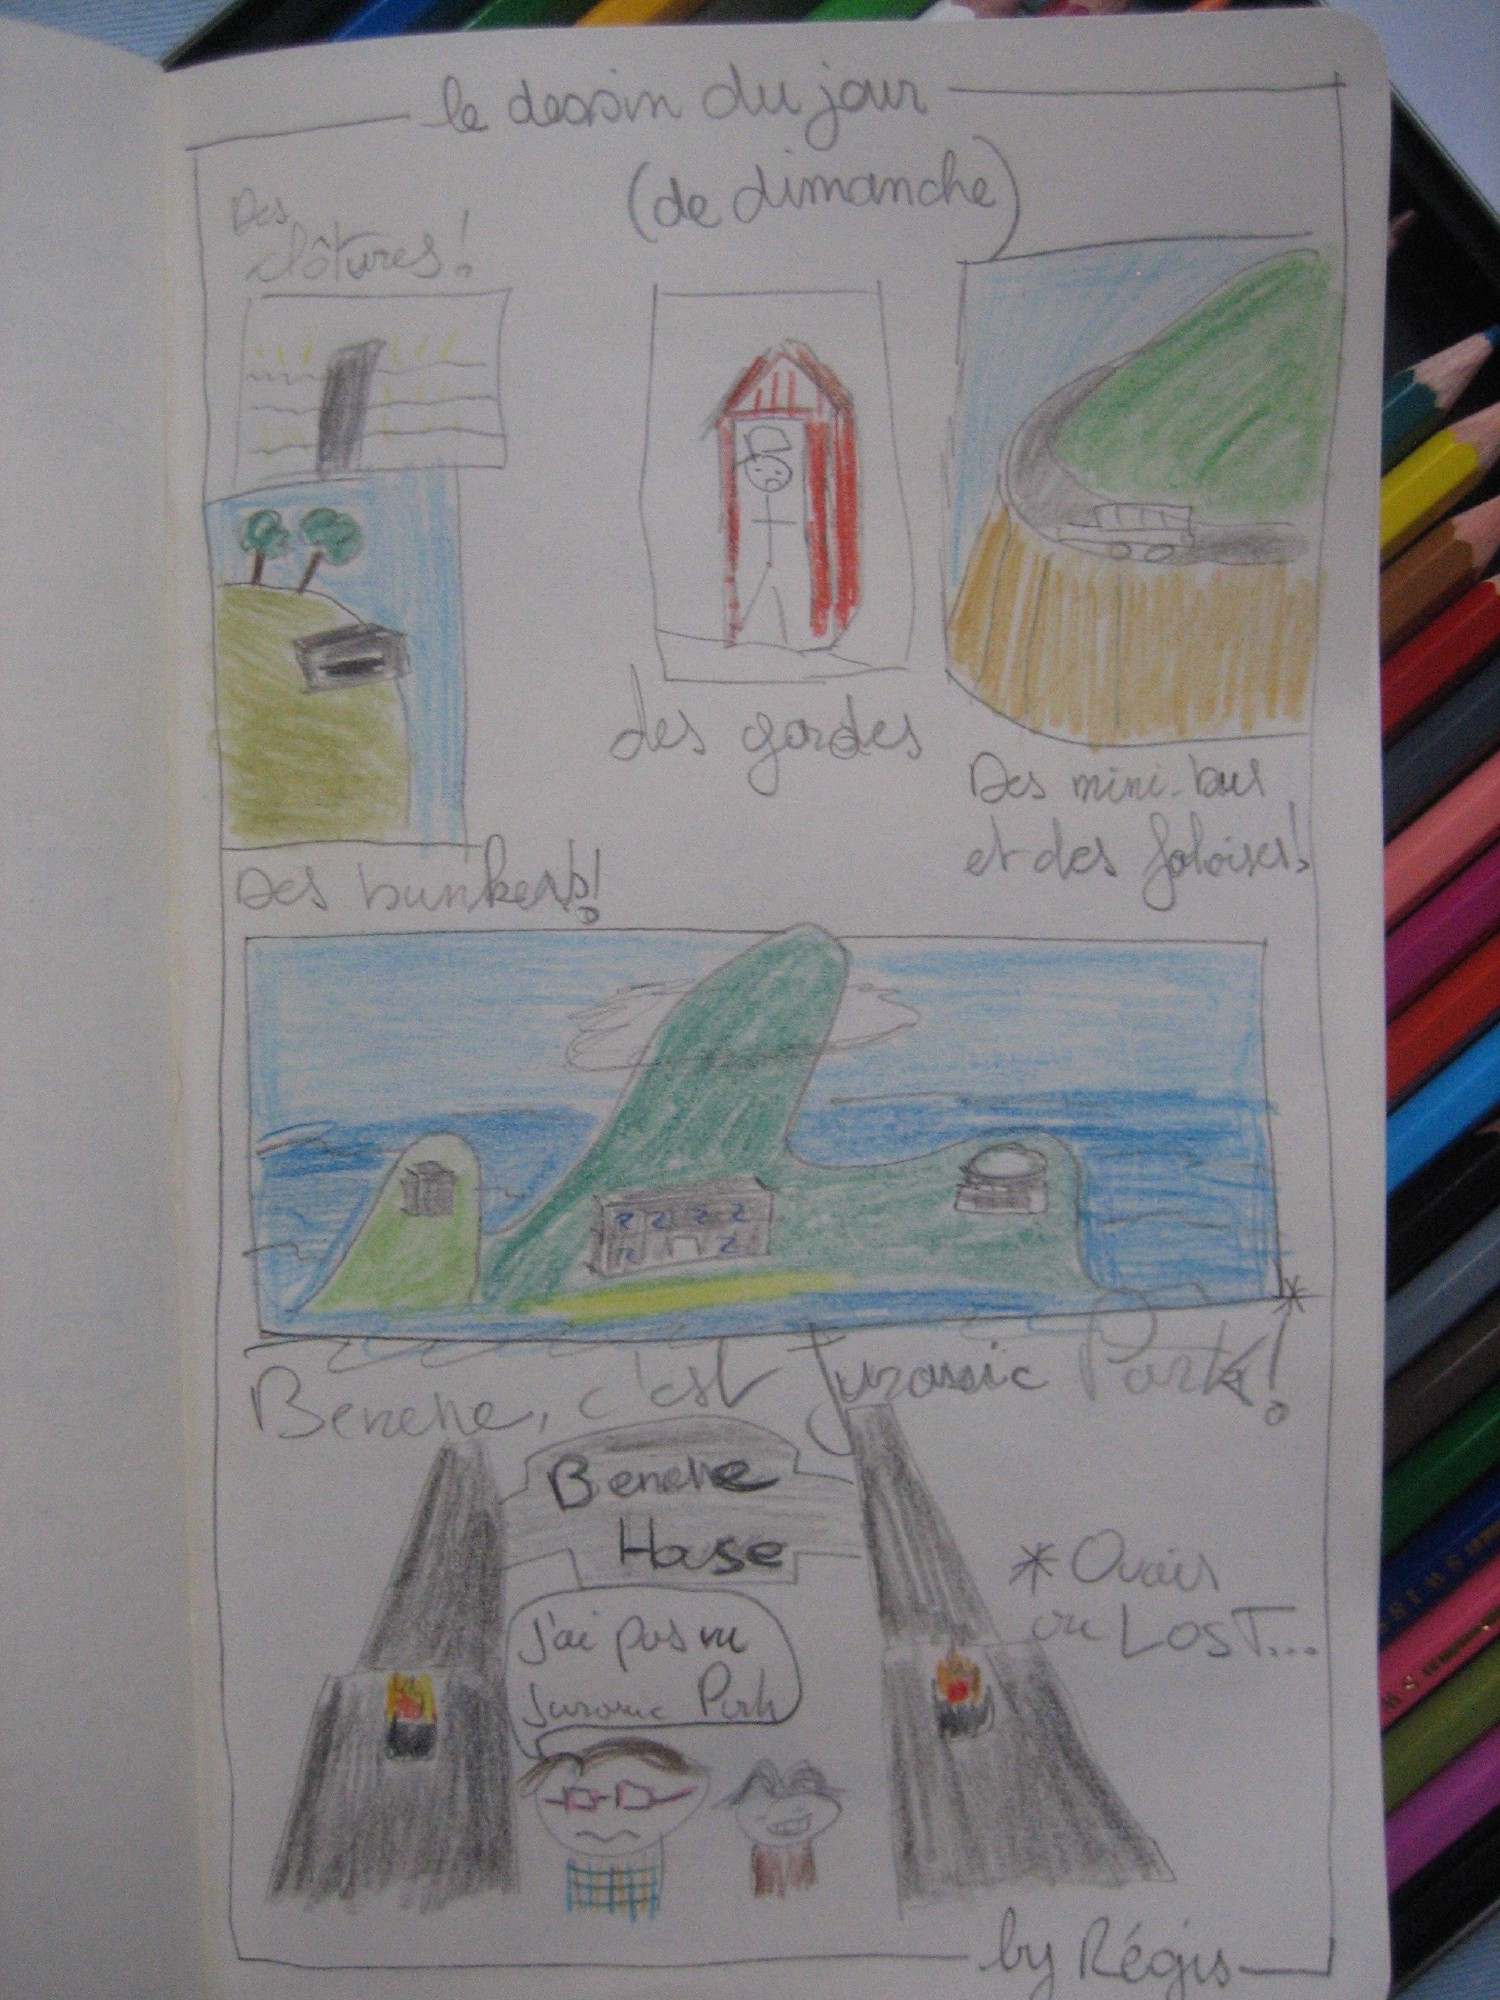 le dessin du jour
(de dimanche)
Des
clôtures!
des gardes
Des mini-bus
et des falaises!
Des bunkers!
Benene, c'est Jurassic Park!
*
Benene
House
* Ouais
ou LOST...
J'ai pas vu
Jurassic Park
by Régis